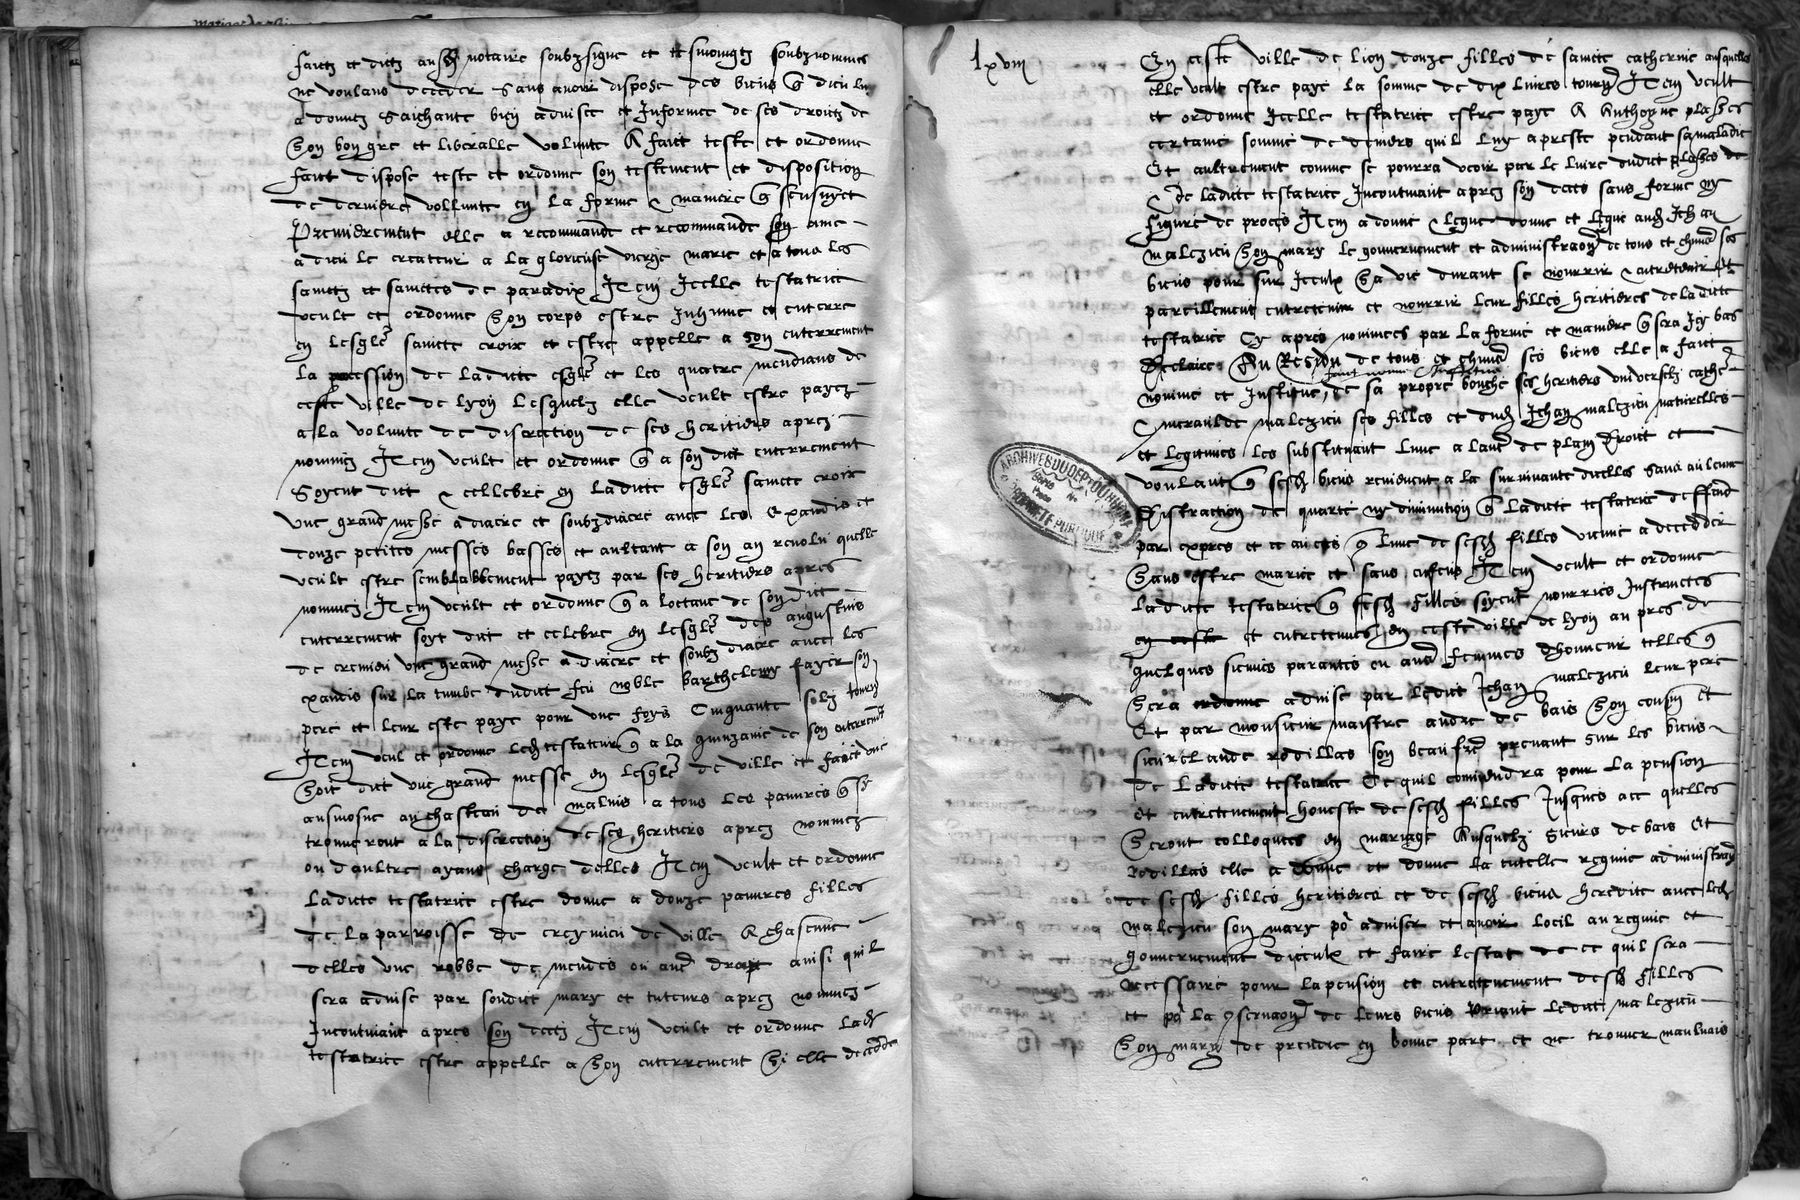 faictz et dictz aud notaire soubzsigne et tesmoingtz soubznommes
ne voulans deceder sans avoir dispose des biens q dieu luy
a donnez Saichante bien advisee et Informee de ses droictz de
Son bon gre et liberalle volunte A faict teste et ordonne
faict dispose teste et ordonne son testement et disposition
de derniere vollunte en la forme & maniere q sensuyct
Premierement elle a recommande et recommande son ame
a dieu le createur a la glorieuse vierge marie et a tous les
sainctz et sainctes de paradix Item Icelle testatrice
veult et ordonne Son corps estre Inhume et enterre
en lesgle saincte croix et estre appelle a son enterrement
la procession de ladicte esgle et les quatre mendians de
ceste ville de lyon Lesquelz elle veult estre payez
a la volunte de discretion de ses heritiers apres
nommez Item veult et ordonne q a son dict enterrement
Soyent dict & cellebre en ladicte esgle saincte croix
une grand messe a diacre et soubzdiacre avec les Exaudis et
douze petites messes basses et aultant a son an revolu quelle
veult estre semblablement payez par ses heritiers apres
nommez Item veult et ordonne q a loctave de son dict
enterrement soyt dict et celebre en lesgle des augustins
de cremieu une grand messe a diacre et soubz diacre avec les
exaudis sur la tumbe dudict feu noble barthelemy fayer son
pere et leur estre paye pour une foys Cinquante solz tourn
Item veult et ordonne led testateur q a la quinzaine de son enterrement
Soit dict une grand messe en lesgle de ville et faict une
ausmosne au chasteau de malins a tous les pauvres q se
trouveront a la discretion de ses heritiers apres nommez
ou daultre ayans charge delles Item veult et ordonne
Ladicte testatrice estre donne a douze pauvres filles
de la parroisse de creymieu de ville A chascune
delles une robbe de mendes ou aultre drap ainsi quil
sera advise par sondict mary et tuteurs apres nommez
Incontinant apres son deces Item veult et ordonne lad
testatrice estre appelle a Son enterrement Si elle decedde
lxviii
En ceste ville de lion douze filles de saincte catherine ausquelles
elle veult estre paye la somme de dix livres tourn Item veult
et ordonne Icelle testatrice estre paye A Anthoyne
certaine somme de deniers quil luy a preste pendant sa maladie
Et aultrement comme se pourra veoir par le livre dudict
de ladicte testatrice Incontinant apres son deces sans forme ny
figure de proces Item a donne & legue donne et legue aud Jehan
malezieu Son mary le gouvernement et administraon de tous et chung ses
biens pour sur Iceulx Sa vie durant se nourrir & entretenir et
pareillement entretenir et nourrir leur filles heritieres de ladicte
testatrice Cy apres nommees par la forme et maniere q sera Icy bas
declaire Au Residu de tous et chung ses biens elle a faict
faict nomme Institue
nomme et Institue de sa propre bouche ses heritiers universelz cathe
& meraulde malezieu ses filles et dud Jehan malezieu naturelles
et legitimes les substituant lune a laultre de plain droict et
voulant q sesd biens reviennent a la survivante dicelles sans aulcune
distraction de quarte ny diminution q ladicte testatrice deffend
par expres et ce au cas q lune de sesd filles vienne a decedder
Sans estre mariee et sans enfens Item veult et ordonne
ladicte testatrice q sesd filles soyent nourries Instruictes
et entretenues en ceste ville de lyon au pres de
quelques siennes parantes ou aultres femmes dhonneur telles q
Sera advise par ledict Jehan malezieu leur pere
Et par monsieur maistre andre de bais Son cousin et
sieur rodillas son beau frere prenant sur les biens
de ladicte testatrice Ce quil conviendra pour la pension
et entretenement honeste de sesd filles Jusques a ce quelles
Seront colloquees en mariage Ausquelz Sieurs de bais et
rodillas elle a donne et donne la tutelle regime administraon
de sesd filles heritieres et de sesd biens heredite avec led
malezieu son mary po adviser et avoir loeil au regime et
gouvernement diceulx et faire lestat de ce quil sera
necessaire pour la pension et entretenement desd filles
et po la conservaon de leurs biens Priant ledict malezieu
Son mary de prendre en bonne part et ne trouver maulvais
ARCHIVES DU DEPT DU RHONE
PROPRIETE PUBLIQUE